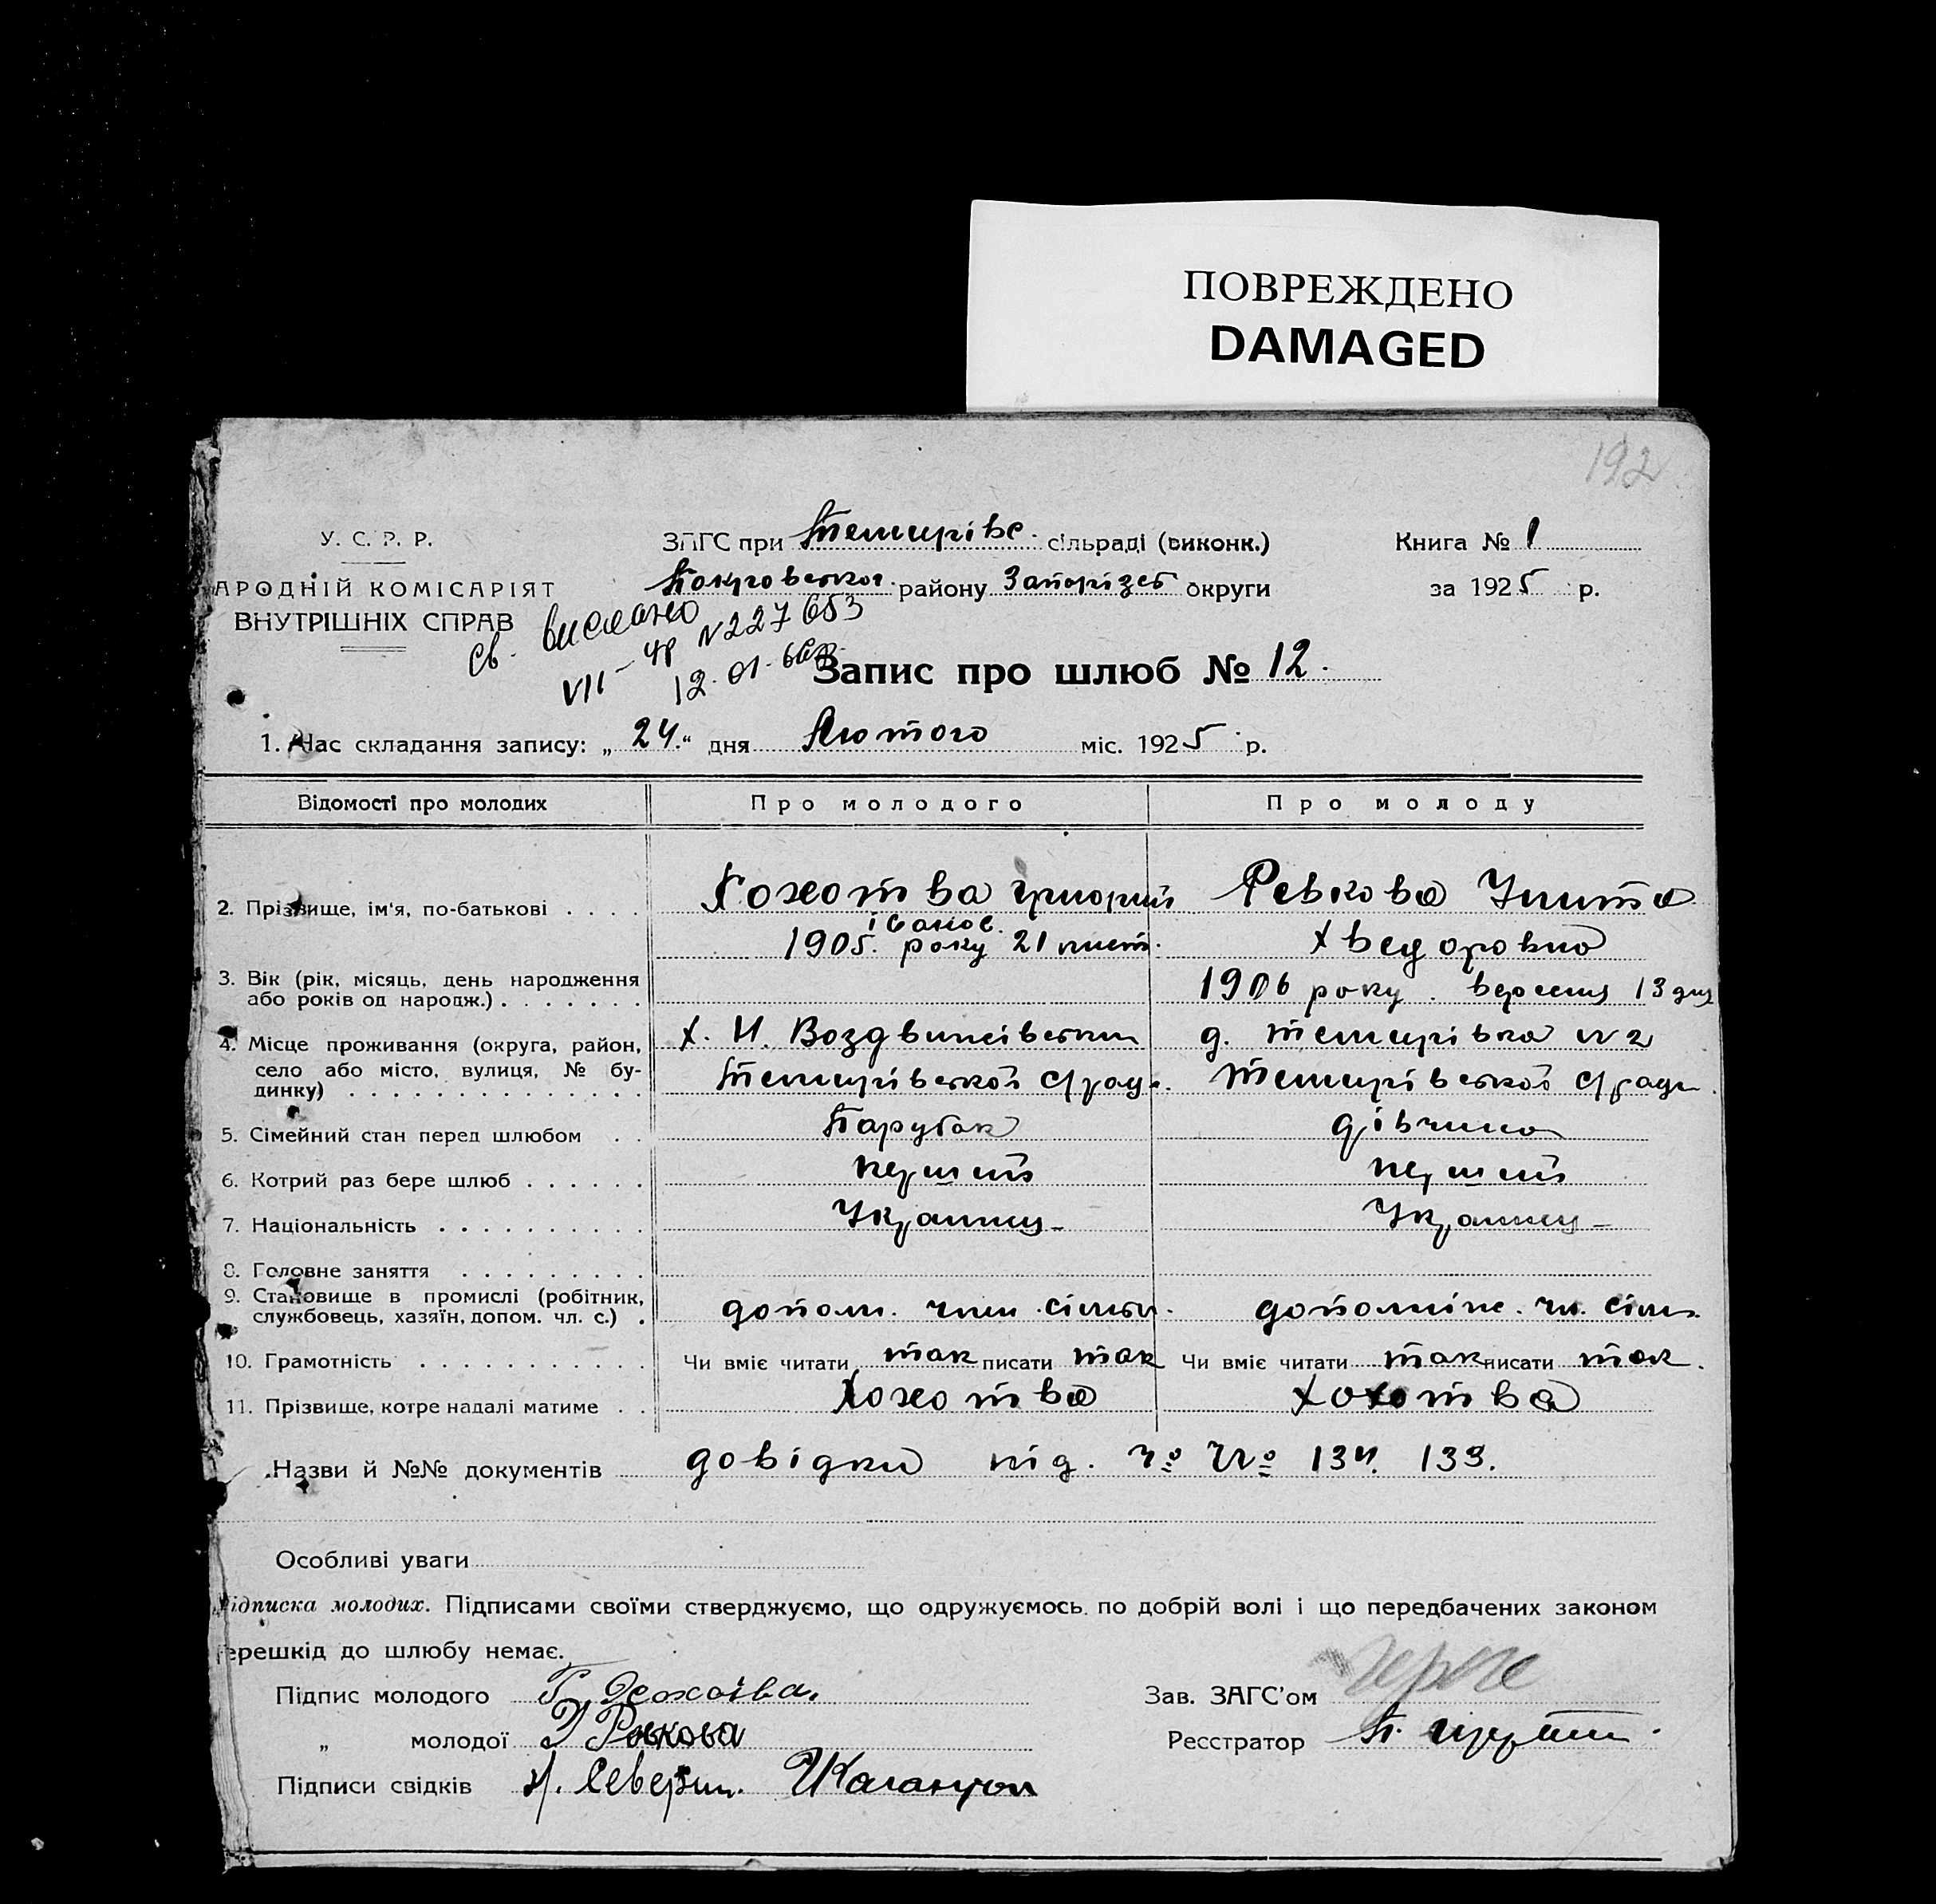 ПОВРЕЖДЕНО
DAMAGED
192
У. С. Р. Р.
АРОДНІЙ КОМІСАРІЯТ
ВНУТРІШНІХ СПРАВ
ЗАГС при Темирівс. сільраді (виконк.)
Покровськог. району Запорізсь округи
Книга № 1
за 1925 р.
св. вислано
VII-ЧР N227653
12.01.
Запис про шлюб № 12.
1. Час складання запису: „24.“ дня Лютого міс. 1925 р.
Відомості про молодих Про молодого Про молоду
2. Прізвище, ім'я, по-батькові . . . . Григорий Ревкова
іванов.
1905. року 21 лист. Хведоровна
3. Вік (рік, місяць, день народження
або років од народж.) . . . . . . . 1906 року. вересня 13 дня
4. Місце проживання (округа, район, х. Н. Воздвиживський д. Темирівка N2
село або місто, вулиця, № бу- Темирівської с/рад. Темирівської с/ради.
динку) . . . . . . . . . . . . . .
5. Сімейний стан перед шлюбом . . Парубок дівчина
6. Котрий раз бере шлюб . . . . . . перший перший
7. Національність . . . . . . . . . . Украинц- Украинц-
8. Головне заняття . . . . . . . . .
9. Становище в промислі (робітник,
службовець, хазяїн, допом. чл. с.) . допом. член .сімьи. чл. сім.
10. Грамотність . . . . . . . . . . . Чи вміє читати так писати так Чи вміє читати так писати так.
11. Прізвище, котре надалі матиме . . Хохотва Хохотва
Назви й №№ документів довідки під. 134. 133.
Особливі уваги
ідписка молодих. Підписами своїми стверджуємо, що одружуємось по добрій волі і що передбачених законом
ерешкід до шлюбу немає.
Підпис молодого Г
Зав. ЗАГС'ом
„ молодої Ревкова
Реєстратор П.
Підписи свідків